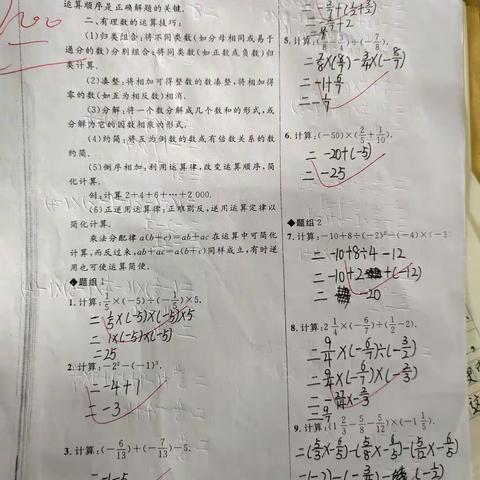 运算顺序是正确解题的关键.
二、有理数的运算技巧:
(1)归类组合:将不同类数(如分母相同或易于
通分的数)分别组合;将同类数(如正数或负数)归
类计算.
(2)凑整:将相加可得整数的数凑整,将相加得
零的数(如互为相反数)相消.
(3)分解:将一个数分解成几个数和的形式,或
分解为它的因数相乘的形式.
(4)约简:将互为倒数的数或有倍数关系的数
约简.
(5)倒序相加:利用运算律,改变运算顺序,简
化计算.
例:计算2+4+6+…+2 000.
(6)正逆用运算律:正难则反,逆用运算定律以
简化计算.
乘法分配律a(b+c)=ab+ac在运算中可简化
计算,而反过来,ab+ac=a(b+c)同样成立,有时逆
用也可使运算简便.
◆题组1
1.计算:1/5×(-5)÷(-1/5)×5.
=1/5×(-5)×(-5)×5
=1×(-5)×(-5)
=25
2.计算:-2²-(-1)³.
=-4+1
=-3
3.计算:(-6/13)+(-7/13)-5.
=-1-5
5.计算:(3/8-3/4)÷(-7/8).
=3/8×(-8/7)-3/4×(-8/7)
6.计算:(-50)×(2/5+1/10).
=-20+(-5)
=-25
◆题组2
7.计算:-10+8÷(-2)²-(-4)×(-3
=-10+8÷4-12
=-10+2+(-12)
=-20
8.计算:2 1/4×(-6/7)÷(1/2-2).
=9/4×(-6/7)÷(-3/2)
=9/4×(-6/7)×(-2/3)
=9/7
9.计算:(1 2/3-5/8-5/12)×(-1 1/5).
=(5/3×-6/5)-(5/8×-6/5)-(5/12×-6/5)